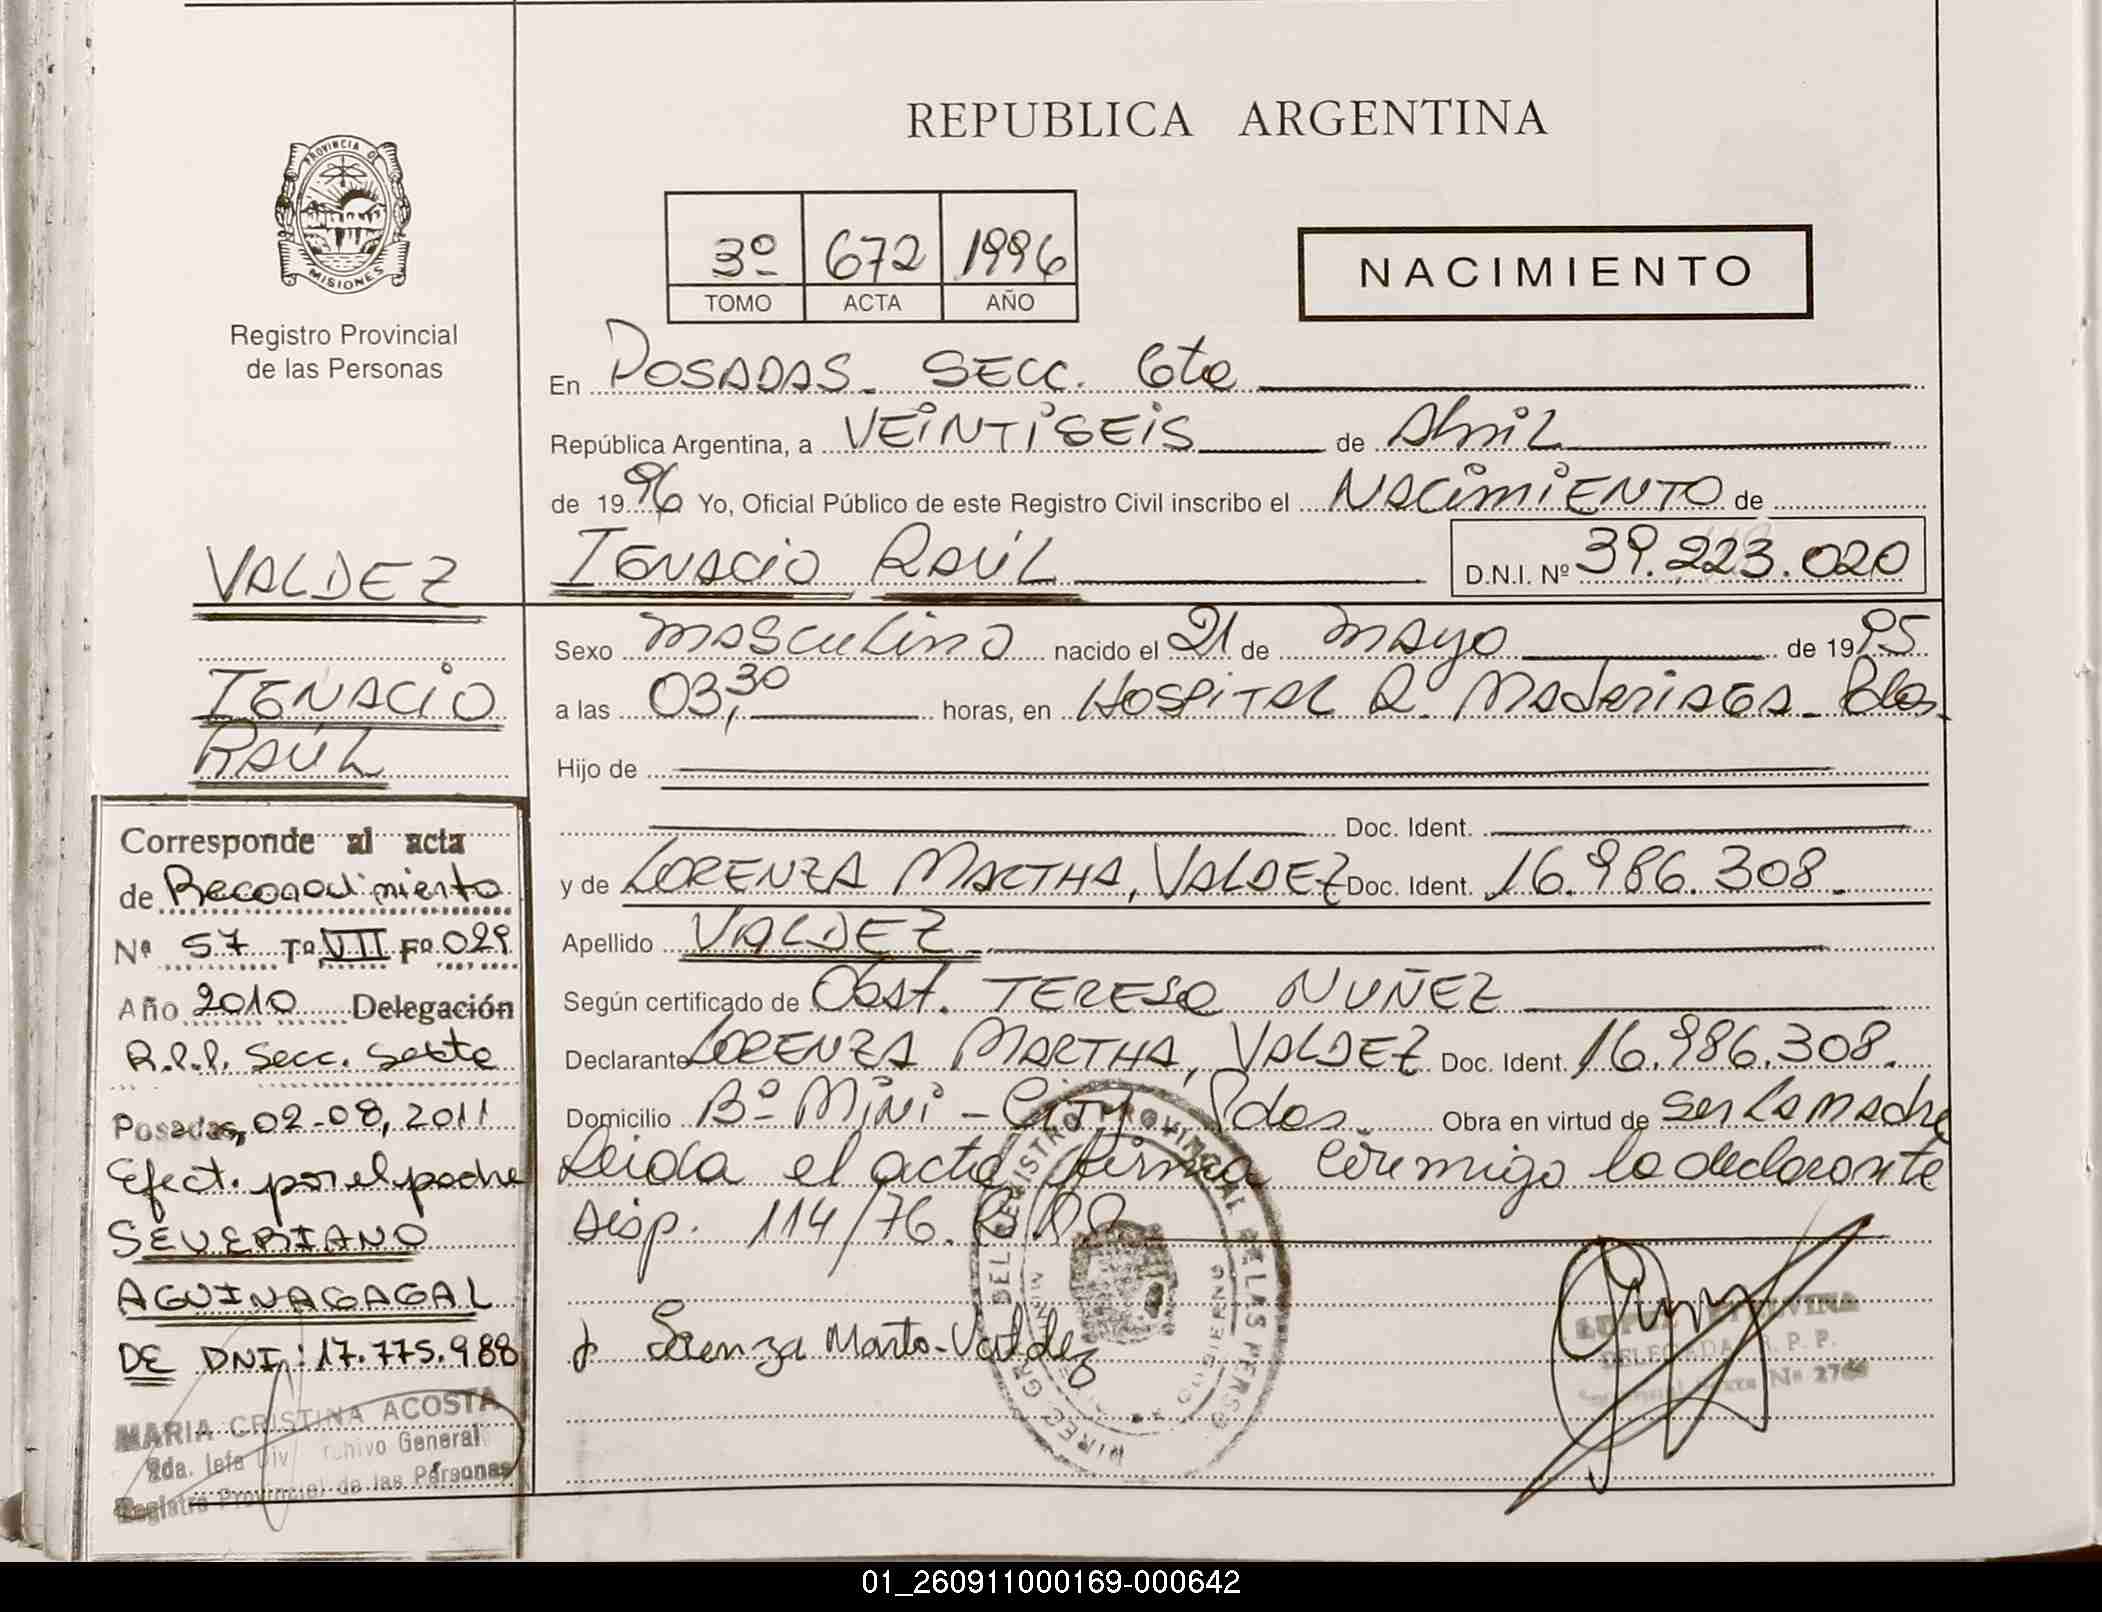 REPUBLICA ARGENTINA
PROVINCIA DE
MISIONES
Registro Provincial
de las Personas
3º 672 1996
TOMO ACTA AÑO
NACIMIENTO
En POSADAS. SECC. 6ta
República Argentina, a VEINTISEIS de Abril
de 1996 Yo, Oficial Público de este Registro Civil inscribo el NACIMIENTO de
IGNACIO RAÚL D.N.I. Nº 39.223.020
VALDEZ
IGNACIO
RAÚL
Sexo masculino nacido el 21 de mayo de 1995
a las 03,30 horas, en HOSPITAL R. MADARIAGA - Pdas.
Hijo de
Doc. Ident.
y de LORENZA MARTHA, VALDEZ Doc. Ident. 16.986.308.
Apellido VALDEZ
Según certificado de Obst. TERESA NUÑEZ
Declarante LORENZA MARTHA, VALDEZ Doc. Ident. 16.986.308.
Domicilio Bº Mini - City Pdas. Obra en virtud de ser la madre
Leida el acta firma conmigo la declarante
Disp. 114/76.
Lorenza Marta Valdez
DELEGADA R. P. P.
Nº
Corresponde al acta
de Reconocimiento
Nº 57 Tº VII Fº 029
Año 2010 Delegación
R.P.P. Secc. Sexta
Posadas, 02-08, 2011
Efect. por el padre
SEVERIANO
AGUINAGAGAL
DE DNI: 17.775.988
MARIA CRISTINA ACOSTA
2da. Jefa Div Archivo General
Registro Provincial de las Personas
01_260911000169-000642